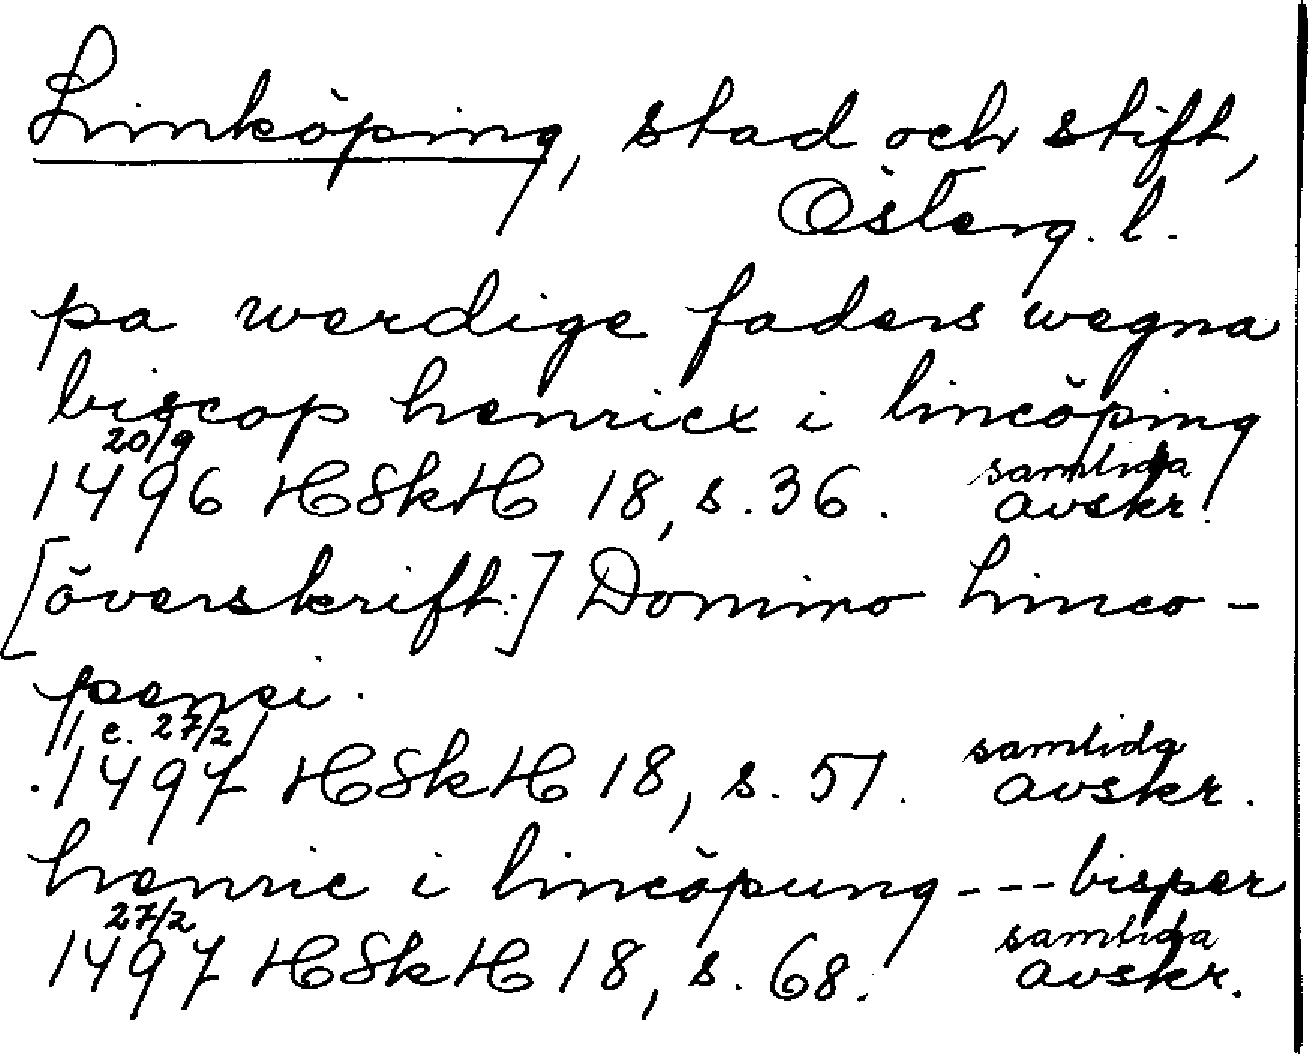 Linköping, stad och stift,
Österg. l.
pa werdige faders wegna
biscop henricx i lincöping
20/9
1496 HSkH 18, s. 36. samtida avskr.
[överskrift:] Domino Linco-
pensi.
// e. 27/2 /
1497 HSkH 18, s. 51. samtida avskr.
henric i lincöpung --- bisper
27/2
1497 HSkH 18, s. 68. samtida avskr.